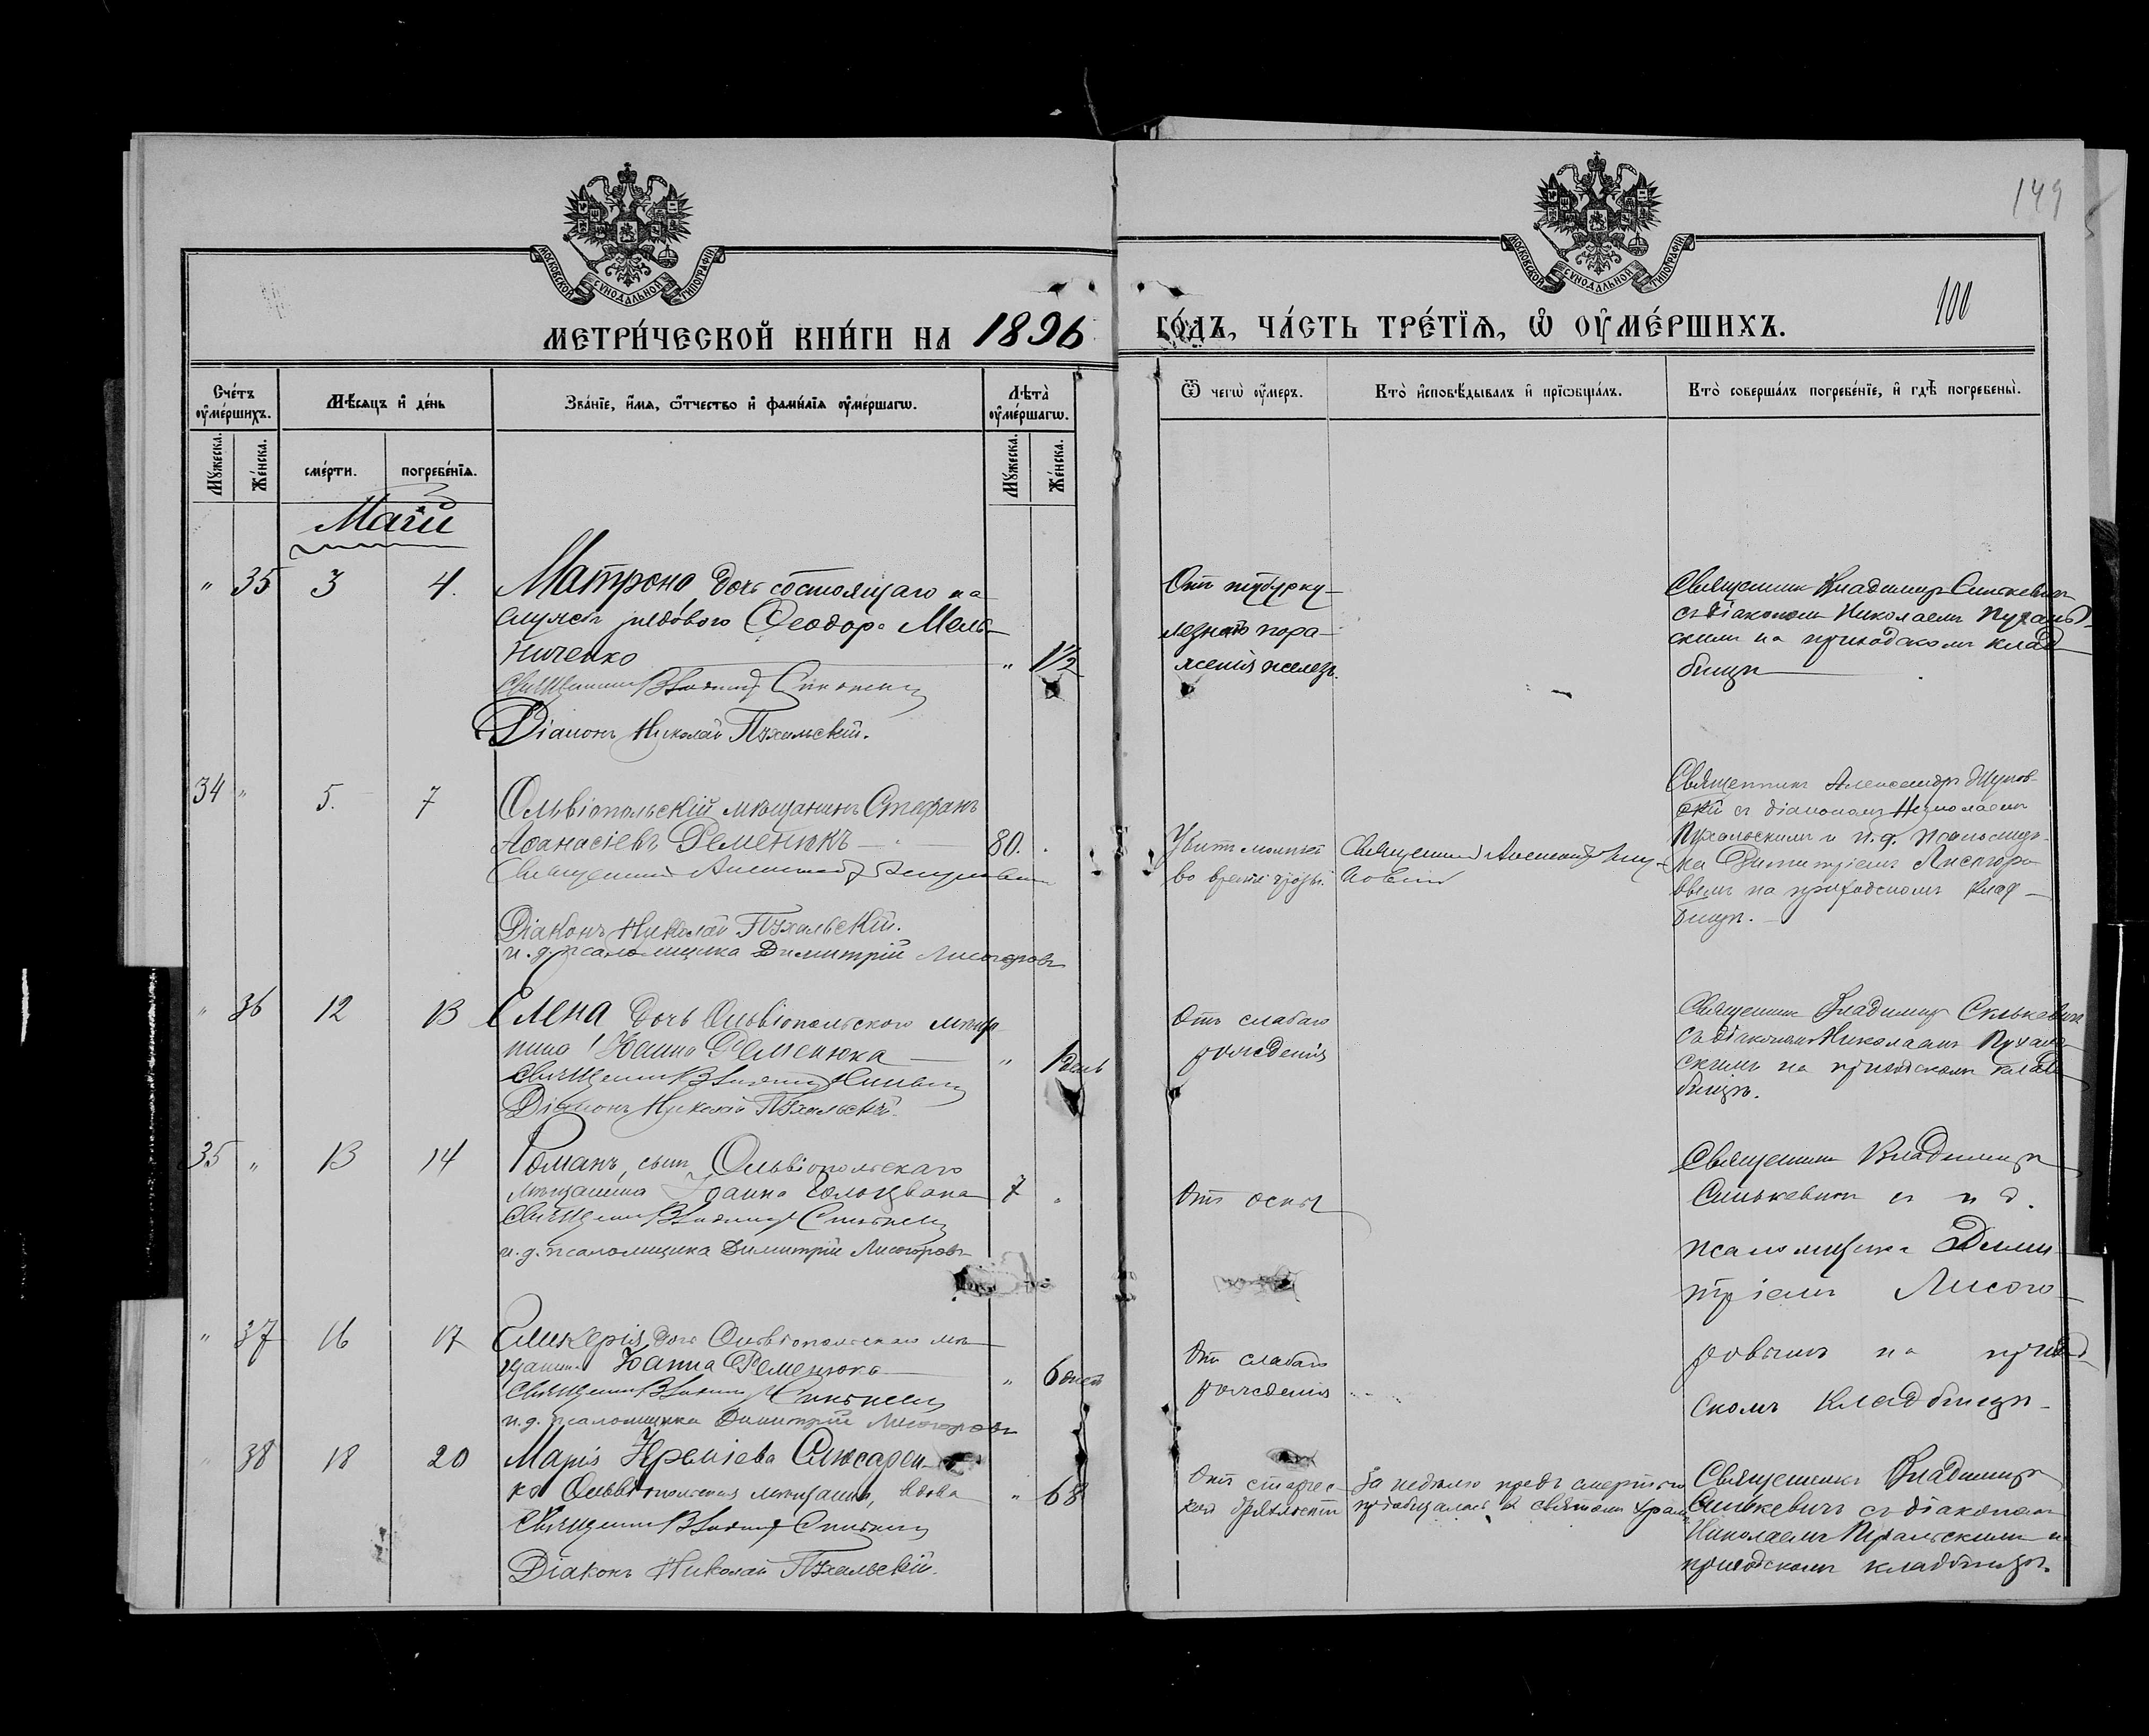 149
100
МОСКОВСКОЙ СѴНОДАЛЬНОЙ ТИПОГРАФІИ
МОСКОВСКОЙ СѴНОДАЛЬНОЙ ТИПОГРАФІИ
МЕТРИ́ЧЕСКОЙ КНИ́ГИ НА 1896 ГО́ДЪ, ЧА́СТЬ ТРЕ́ТІѦ, Ѡ҆ ОУ҆МЕ́РШИХЪ.
Сче́тъ оу҆ме́ршихъ.
Мѣ́сѧцъ и҆ де́нь
Зва́нїе, и҆́мѧ, ѻ҆́тчество и҆ фами́лїѧ оу҆ме́ршагѡ.
Лѣ̑та оу҆ме́ршагѡ.
Ѿ чегѡ̀ оу҆́меръ.
Кто̀ и҆сповѣ́дывалъ и҆ прїѡбща́лъ.
Кто̀ соверша́лъ погребе́нїе, и҆ гдѣ̀ погребены̀.
Мꙋ́жеска.
Же́нска.
сме́рти.
погребе́нїѧ.
Мꙋ́жеска.
Же́нска.
Маій
" 35 3 4.
Матрона, дочь состоящаго на
службѣ рядового Ѳеодора Мель-
ниченко " 1½
Священникъ Владимиръ Синькевичъ
Діаконъ Николай Пухальскій.
Отъ туберку-
лезнаго пора-
женія железъ.
Священникъ Владимиръ Синькевичъ
съ діакономъ Николаемъ Пухаль-
скимъ на приходскомъ клад-
бищѣ
34 " 5. 7
Ольвіопольскій мѣщанинъ Стефанъ
Аѳанасіевъ Ременюкъ 80. "
Священникъ Александръ
Діаконъ Николай Пухальскій.
и. д. псаломщика Димитрій Лисогоровъ
Убитъ молніей
во время грозы.
Священникъ Александръ
Священникъ Александръ
съ діакономъ Николаемъ
Пухальскимъ и и. д. псаломщи-
ка Димитріемъ Лисогоро-
вымъ на приходскомъ клад-
бищѣ.
" 36 12 13
Елена дочь Ольвіопольского мѣща
нина Іоанна Ременюка " 1 день
Священникъ Владимиръ Синькевичъ
Діаконъ Николай Пухальскій.
Отъ слабаго
рожденія
Священникъ Владимиръ Синькевичъ
съ діакономъ Николаемъ Пухаль-
скимъ на приходскомъ клад-
бищѣ.
35 " 13 14
Романъ, сынъ Ольвіопольскаго
мѣщанина Іоанна Голоцвана 7 "
Священникъ Владимиръ Синькевичъ
и. д. псаломщика Димитрій Лисогоровъ
Отъ оспы
Священникъ Владимиръ
Синькевичъ съ и д.
псаломщика Дими-
тріемъ Лисого-
ровымъ на приход-
скомъ кладбищѣ
" 37 16 17
Гликерія дочь Ольвіопольскаго мѣ-
щанина Іоанна Ременюка " 6 дней
Священникъ Владимиръ Синькевичъ
и. д. псаломщика Димитрій Лисогоровъ
Отъ слабаго
рожденія
" 38 18 20
Марія Слюсарен-
ко Ольвіопольская мѣщанка, вдова " 68
Священникъ Владимиръ Синькевичъ
Діаконъ Николай Пухальскій.
Отъ старчес-
кой дряхлости
За недѣлю предъ смертью
пріобщалась въ святомъ храмѣ
Священникъ Владимиръ
Синькевичъ съ діакономъ
Николаемъ Пухальскимъ на
приходскомъ кладбищѣ.